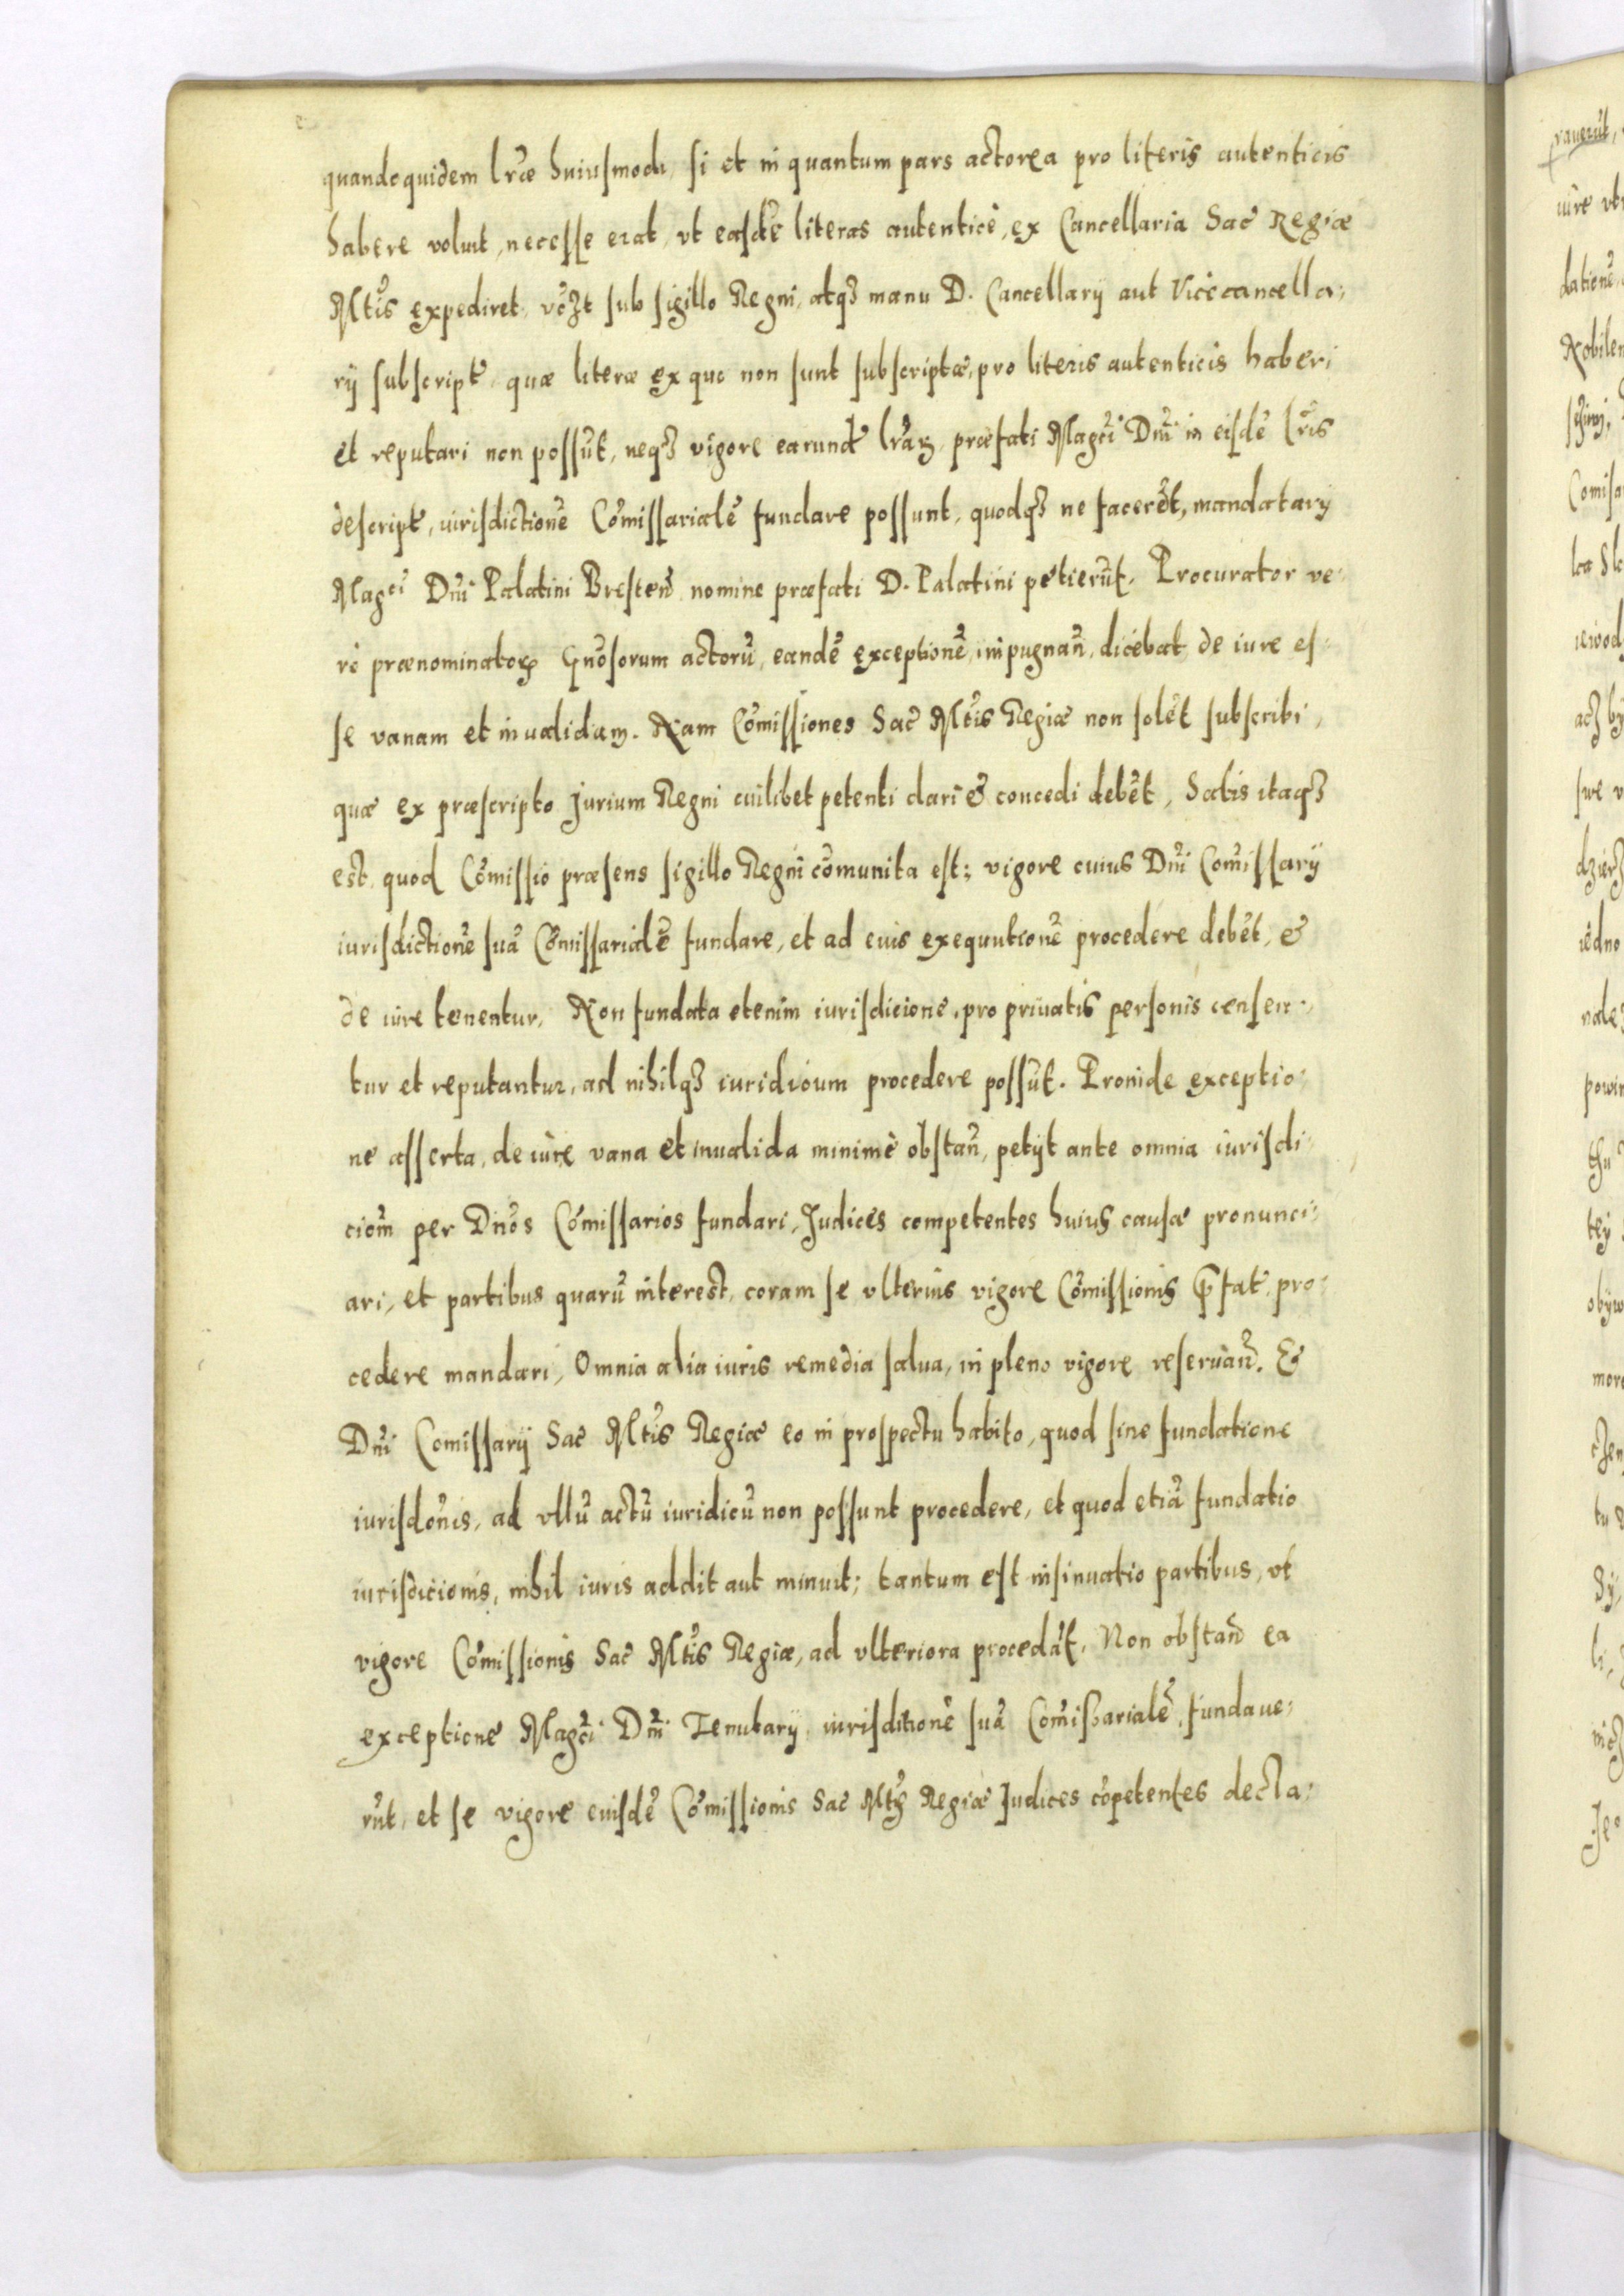 quandoquidem lr̃æ huiusmodi, si et in quantum pars actorea pro literis autenticis
habere voluit, necesse erat, vt easdẽ literas autenticè, ex Cancellaria Sac̃ Regiæ
Mt̃is expediret, vc̃zt sub sigillo Regni, atqꝫ manu D. Cancellarÿ aut Vicecancella:
rÿ subscript̃, quæ literæ ex quo non sunt subscriptæ, pro literis autenticis haberi
et reputari non possũt, neqꝫ vigore earund̃ lr̃aꝝ, præfati Magc̃i Dñi in eisdẽ lr̃is
descript̃, iurisdictionẽ Com̃issarialẽ fundare possunt, quodqꝫ ne facerẽt, mandatarÿ
Magci Dñi Palatini Bresteñ nomine præfati D. Palatini petierũt. Procurator ve:
rò prænominatoꝝ Gnõsorum actorũ, eandẽ exceptionẽ, impugnañ, dicebat de iure es:
se vanam et inualidam. Nam Com̃issiones Sac̃ Mt̃is Regiæ non solẽt subscribi,
quæ ex præscripto Jurium Regni cuilibet petenti dari & concedi debẽt, Satis itaqꝫ
est, quod Com̃issio præsens sigillo Regni com̃unita est; vigore cuius Dñi Com̃issarÿ
iurisdictionẽ suã Com̃issarialẽ fundare, et ad eius exequutionẽ procedere debẽt, &
de iure tenentur, Non fundata etenim iurisdicione, pro priuatis personis censen:
tur et reputantur, ad nihilqꝫ iuridicum procedere possũt. Proinde exceptio:
ne asserta, de iure vana et inualida minimè obstañ, petÿt ante omnia iurisdi:
ciom̃ per Dños Com̃issarios fundari, Judices competentes huius causæ pronunci:
ari, et partibus quarũ interest, coram se vlterius vigore Com̃issionis p̃fat̃, pro:
cedere mandari, Omnia alia iuris remedia salua, in pleno vigore reseruañ. &
Dñi Comissarÿ Sac̃ Mt̃is Regiæ eo in prospectu habito, quod sine fundatione
iurisdõnis, ad vllũ actũ iuridicũ non possunt procedere, et quod etiã fundatio
iurisdicionis, nihil iuris addit aut minuit; tantum est insinuatio partibus, vt
vigore Com̃issionis Sac̃ Mt̃is Regiæ, ad vlteriora procedãt. Non obstañ ea
exceptione Magc̃i Dñi Tenutarÿ iurisditionẽ suã Com̃issarialẽ fundaue:
rũt, et se vigore eiusdẽ Com̃issionis Sac̃ Mt̃ꝫ Regiæ Judices cõpetentes decla: